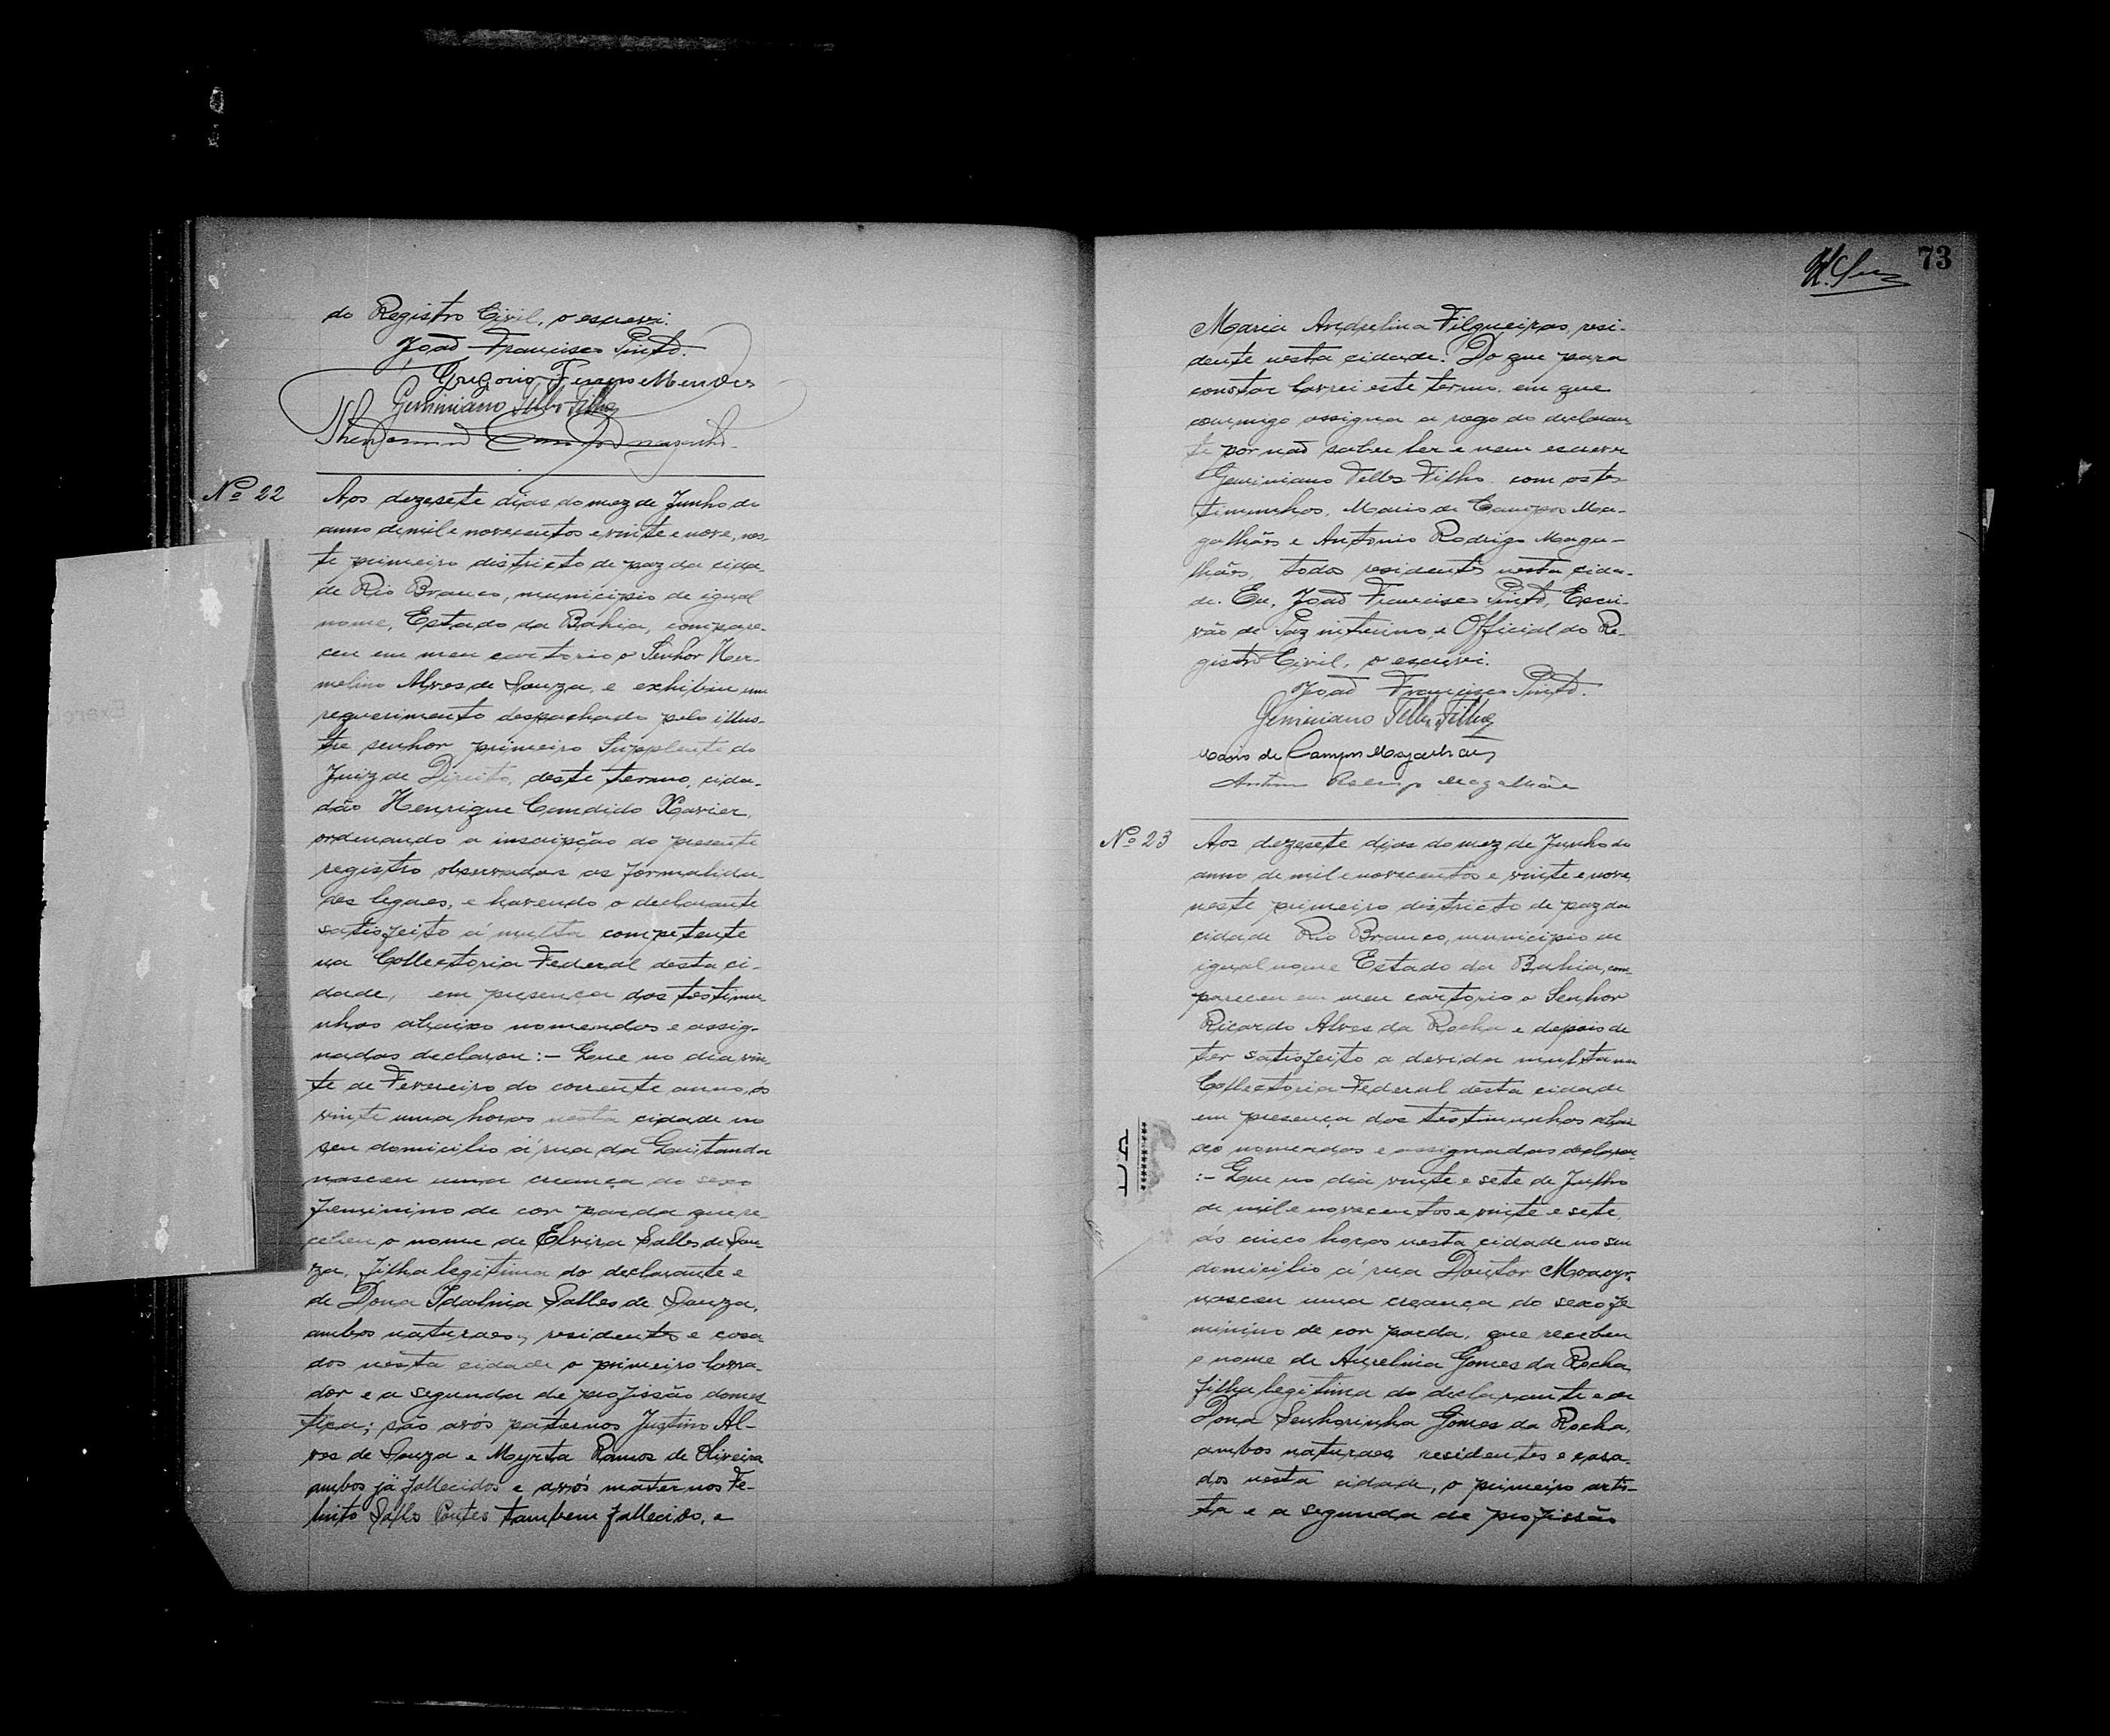 do Registro Civil, o escrevi.
João Francisco Pinto.
Gregorio Ferros Mendes
Geminiano Telles Filho
Nº 22
Aos dezesete dias do mez de Junho do
anno de mil e novecentos e vinte e nove, nes-
te primeiro districto de paz da cida-
de Rio Branco, municipio de igual
nome, Estado da Bahia, compare-
ceu em meu cartorio o Senhor Her-
melino Alves de Souza, e exhibiu um
requerimento despachado pelo illus-
tre senhor primeiro Supplente do
Juiz de Direito, deste termo, cida-
dão Henrique Candido Xavier,
ordenando a inscripção do presente
registro observadas as formalida-
des legaes, e havendo o declarante
satisfeito á multa competente
na Collectoria Federal desta ci-
dade, em presença das testimu
nhas abaixo nomeadas e assig-
nadas declarou:- Que no dia vin-
te de Fevereiro do corrente anno, ás
vinte uma horas nesta cidade no
seu domicilio á rua da Quitanda
nasceu uma creança do sexo
femínino de cor parda que re-
cebeu o nome de Elvira Salles de Sou-
za, filha legitima do declarante e
de Dona Idalnia Salles de Souza,
ambos naturaes, residentes e casa
dos nesta cidade o primeiro lavra-
dor e a segunda de profissão domes
tica; são avós paternos Justino Al-
ves de Souza e Myrta Ramos de Oliveira
ambos já fallecidos e avós maternos Fe-
Salles Pontes tambem fallecido, e
73
Maria Andrelina Filgueiras, resi-
dente nesta cidade. Do que para
constar lavrei este termo em que
commigo assigna a rogo do declaran
te por não saber ler e nem escrever
Geminiano Telles Filho com as tes
timunhas, Mario de Campos Ma-
galhães e Antonio Rodrigo Maga-
lhães, todos residentes nesta cida-
de. Eu, João Francisco Pinto, Escri-
vão de Paz interino e Official do Re-
gistro Civil, o escrevi.
João Francisco Pinto.
Geminiano Telles Filho
Mario de Campos Magalhães
Antonio Rodrigo Magalhães
Nº 23
Aos dezesete dias do mez de Junho do
anno de mil e novecentos e vinte e nove
neste primeiro districto de paz da
cidade Rio Branco, municipio de
igual nome Estado da Bahia, com-
pareceu em meu cartorio o Senhor
Ricardo Alves da Rocha e depois de
ter satisfeito a devida multa na
Collectoria Federal desta cidade
em presença das testimunhas abai
xo nomeadas e assignadas declarou
:- Que no dia vinte e sete de Julho
de mil e novecentos e vinte e sete,
ás cinco horas nesta cidade no seu
domicilio á rua Doutor Moacyr,
nasceu uma creança do sexo fe
minino de cor parda, que recebeu
o nome de Aurelina Gomes da Rocha
filha legitima do declarante e de
Dona Senhorinha Gomes da Rocha,
ambos naturaes residentes e casa-
dos nesta cidade, o primeiro artis-
ta e a segunda de profissão